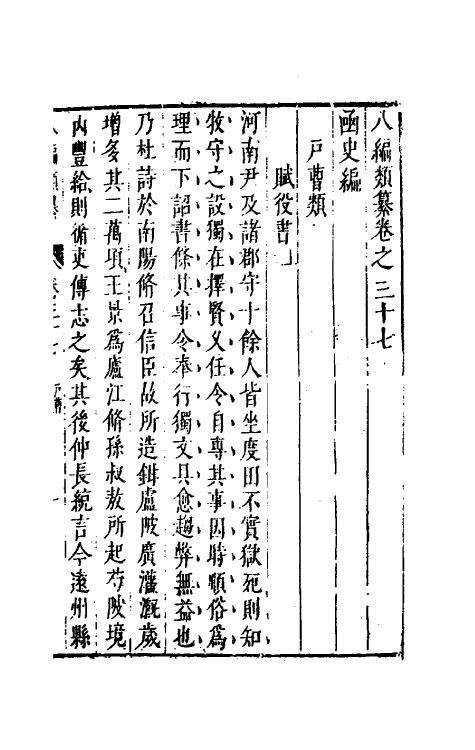 八編類纂卷之三十七
函史編
戶曹類
賦役書
河南尹及諸郡守十餘人皆坐度田不實獄死則知
牧守之設獨在擇賢久任令自專其事因時順俗爲
理而下詔書條其事令奉行獨文具愈趨弊無益也
乃杜詩於南陽脩召信臣故所造鉗盧陂廣灌溉歲
增多其二萬頃王景爲廬江脩孫叔敖所起芍陂境
內豐給則循吏傳志之矣其後仲長統言今遠州縣
八編類纂 卷三十七 一